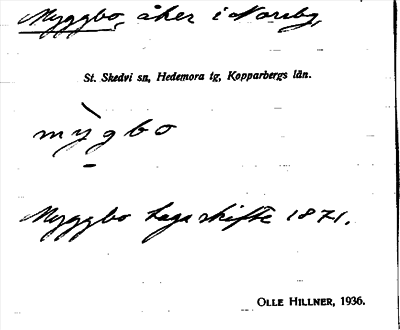 Myggbo, åker i Norrby,
St. Skedvi sn, Hedemora tg, Kopparbergs län.
mỳgbo
Myggbo Laga skifte 1871.
OLLE HILLNER, 1936.